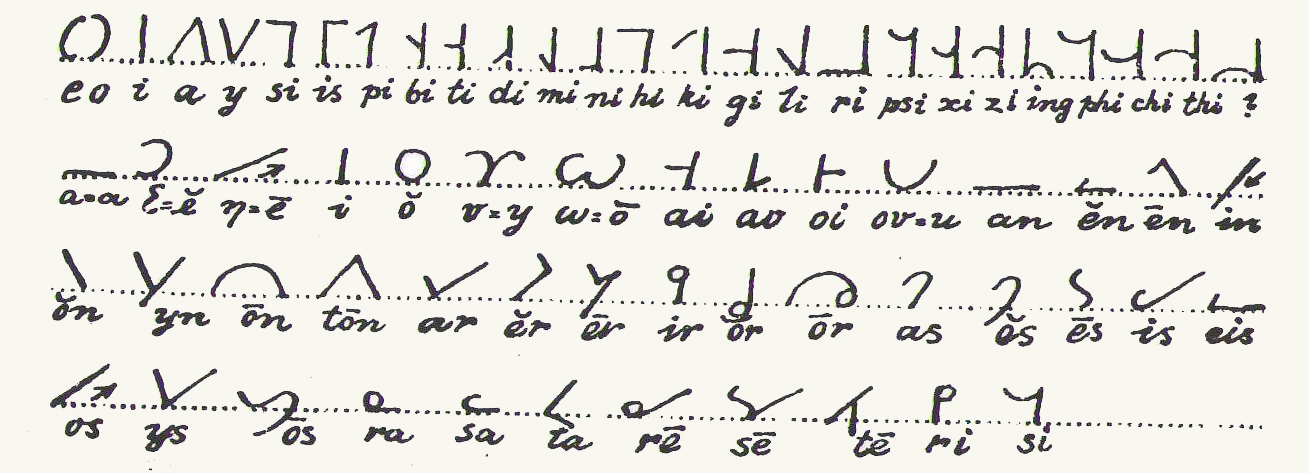 e o i a y si is pi bi ti di mi ni hi ki gi li ri psi xi zi ing phi chi thi ?
a=a ξ=ĕ η=ē i ŏ υ=y ω=ō ai av oi ov=u an ĕn ēn in
ŏn yn ōn tōn ar ĕr ēr ir ŏr ōr as ĕs ēs is eis
os ys ōs ra sa ta rē sē tē ri si